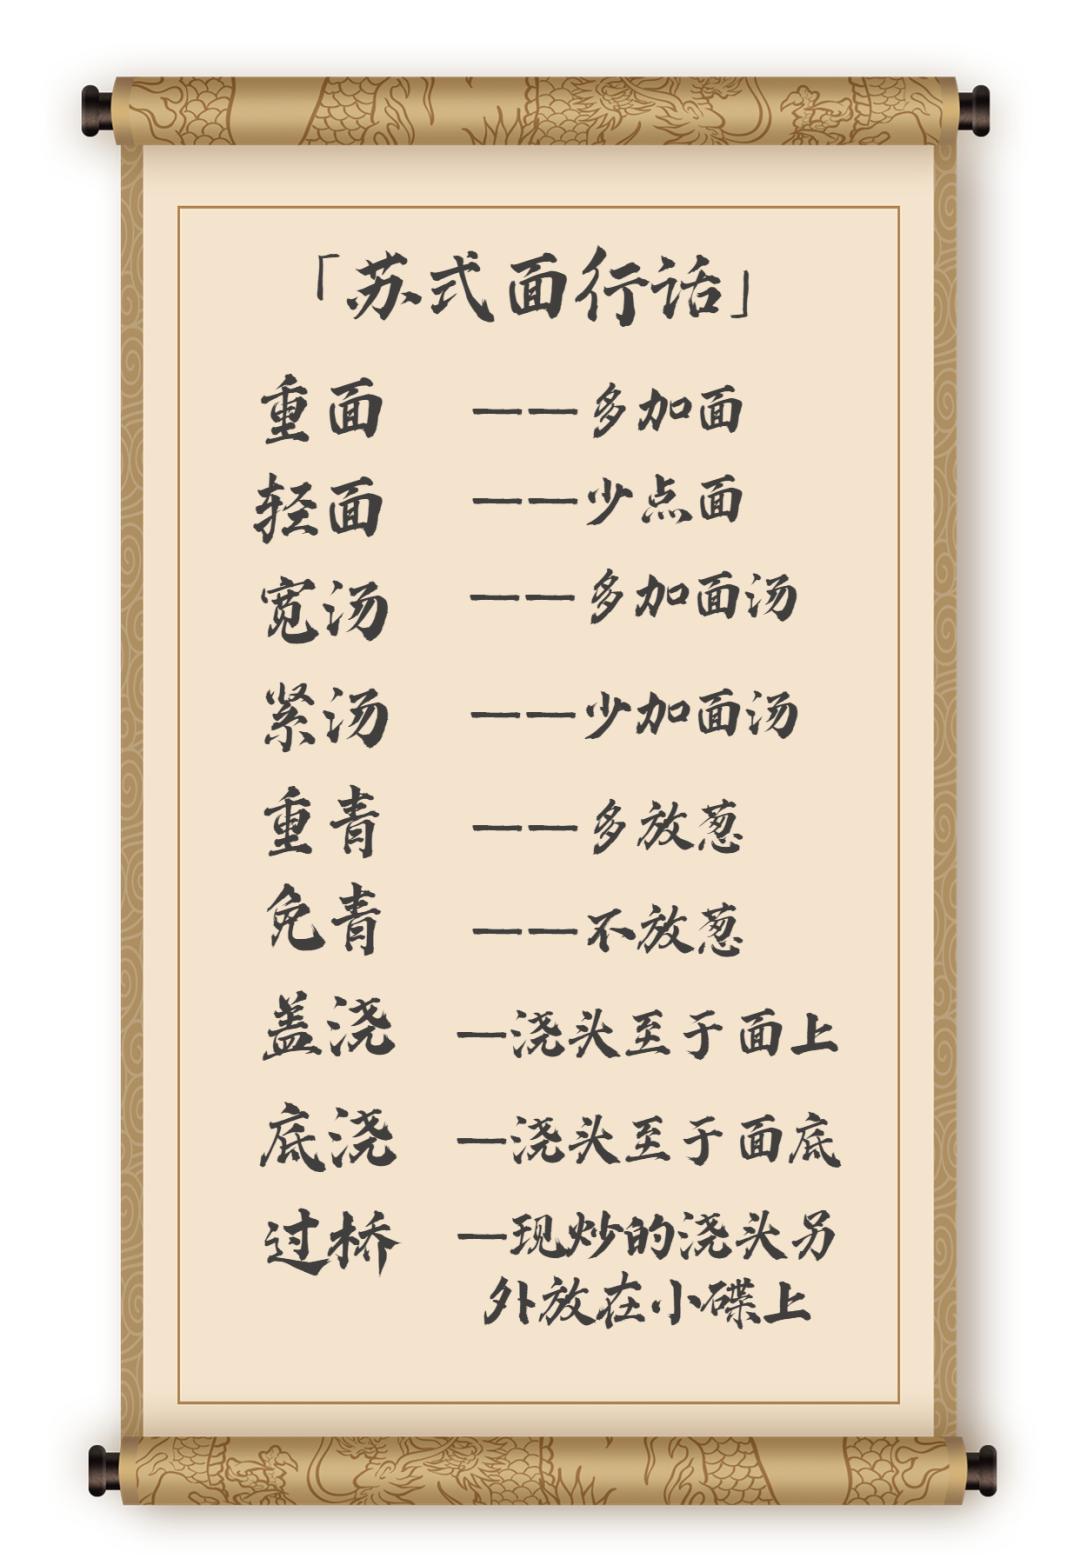 「苏式面行话」
重面 ——多加面
轻面 ——少点面
宽汤 ——多加面汤
紧汤 ——少加面汤
重青 ——多放葱
免青 ——不放葱
盖浇 —浇头至于面上
底浇 —浇头至于面底
过桥 —现炒的浇头另
外放在小碟上